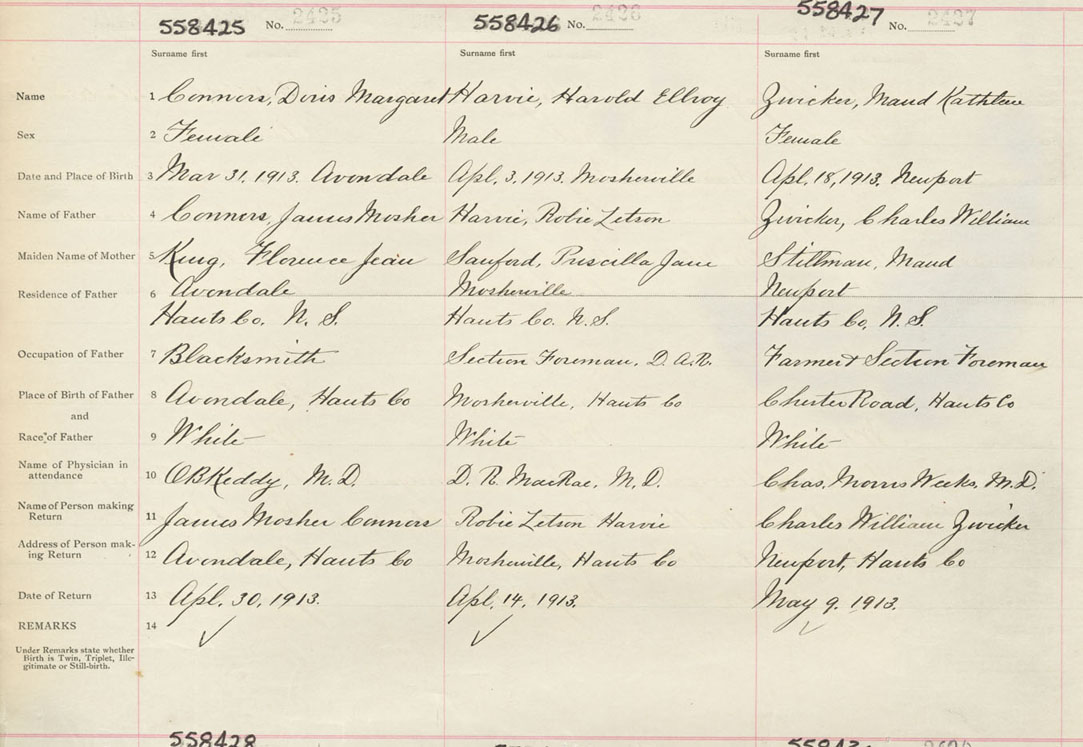 558425 No. 2425 558426 No. 2426 558427 No. 2427
Surname first Surname first Surname first
Name 1 Connors, Doris Margaret Harvie, Harold Ellroy Zwicker, Maud Kathleen
Sex 2 Female Male Female
Date and Place of Birth 3 Mar 31, 1913. Avondale Apl. 3, 1913. Mosherville Apl. 18, 1913. Newport
Name of Father 4 Connors, James Mosher Harvie, Robie Letson Zwicker, Charles William
Maiden Name of Mother 5 King, Florence Jean Sanford, Priscilla Jane Stillman, Maud
Residence of Father 6 Avondale Mosherville Newport
Hants Co. N. S. Hants Co. N. S. Hants Co, N. S.
Occupation of Father 7 Blacksmith Section Foreman, D. A. R. Farmer & Section Foreman
Place of Birth of Father 8 Avondale, Hants Co Mosherville, Hants Co Chester Road, Hants Co
and
Race of Father 9 White White White
Name of Physician in
attendance 10 O B Keddy, M. D. D. R. MacRae, M. D. Chas. Morris Weeks, M. D.
Name of Person making
Return 11 James Mosher Connors Robie Letson Harvie Charles William Zwicker
Address of Person mak-
ing Return 12 Avondale, Hants Co Mosherville, Hants Co Newport, Hants Co
Date of Return 13 Apl. 30, 1913. Apl. 14, 1913. May 9, 1913.
REMARKS 14
Under Remarks state whether
Birth is Twin, Triplet, Ille-
gitimate or Still-birth.
558428